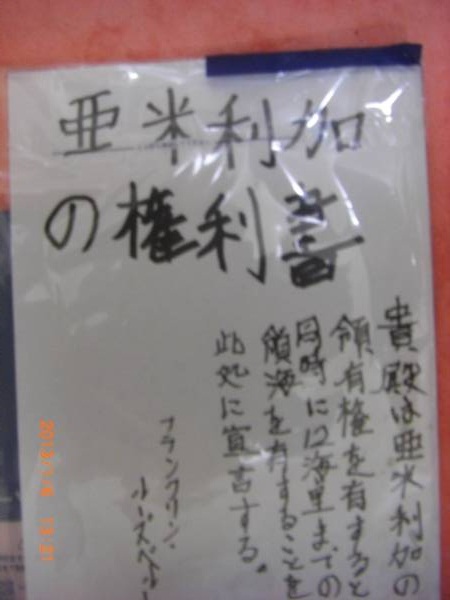 亜米利加
の権利書
貴殿は亜米利加の
領有権を有すると
同時に12海里までの
領海を有することを
此処に宣言する。
フランクリン・